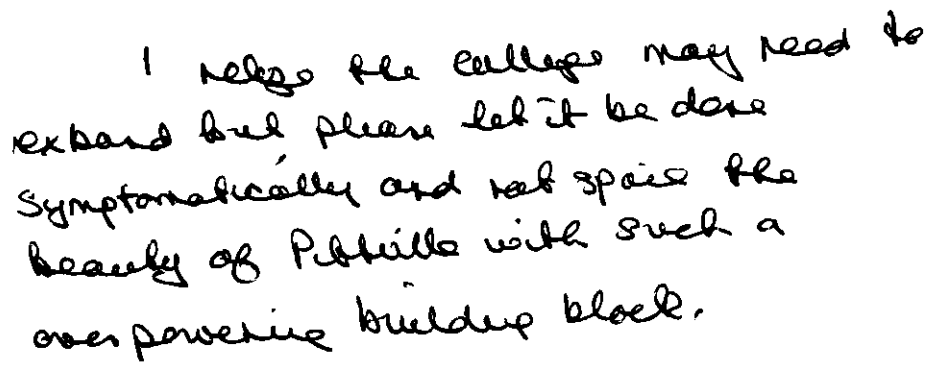 I relize the college may need to
expand but please let it be done
symptomatically and not spoil the
beauty of Pittville with such a
overpowering building block.